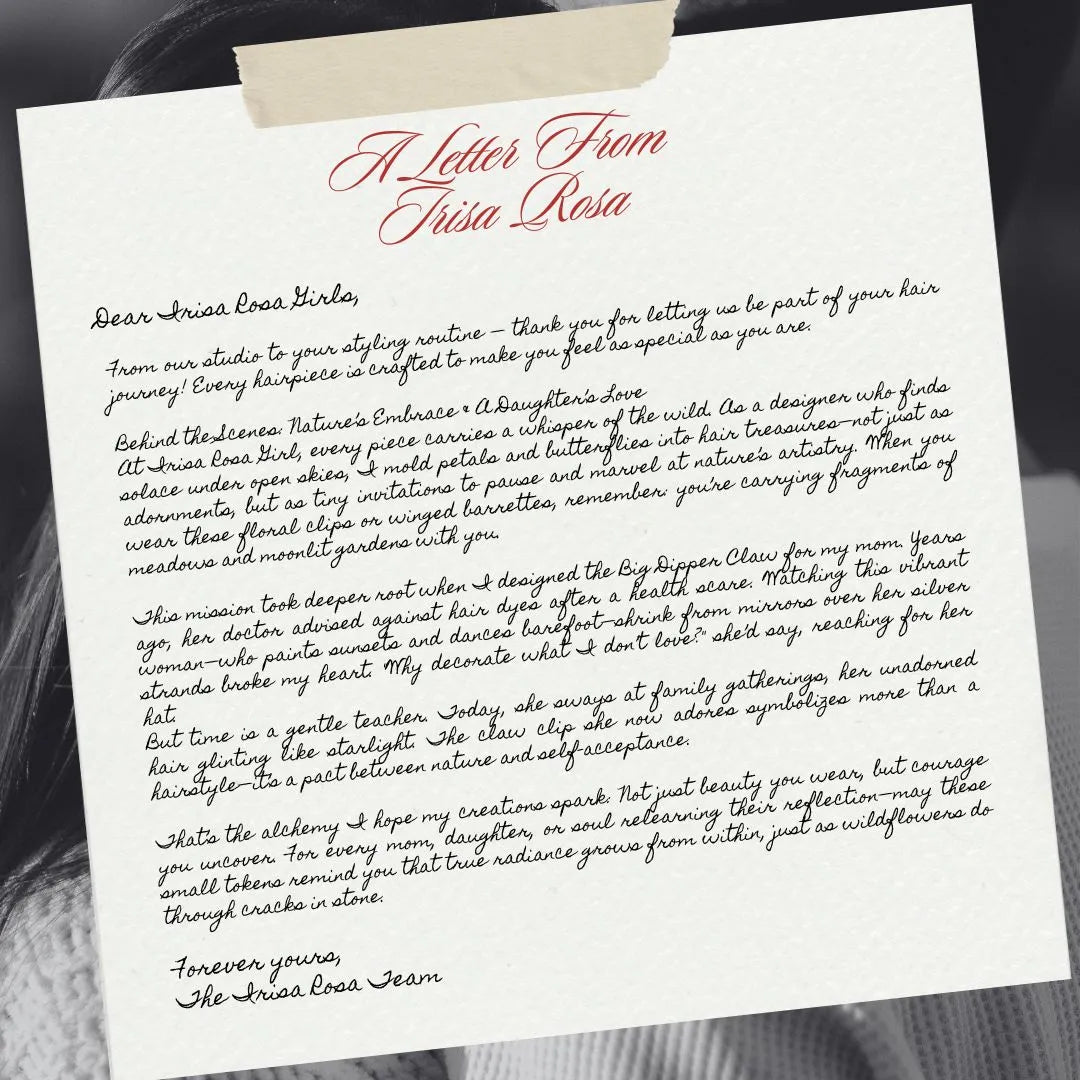 A Letter From
Irisa Rosa
Dear Irisa Rosa Girls,
From our studio to your styling routine – thank you for letting us be part of your hair
journey! Every hairpiece is crafted to make you feel as special as you are.
Behind the Scenes: Nature's Embrace & A Daughter's Love
At Irisa Rosa Girl, every piece carries a whisper of the wild. As a designer who finds
solace under open skies, I mold petals and butterflies into hair treasures—not just as
adornments, but as tiny invitations to pause and marvel at nature's artistry. When you
wear these floral clips or winged barrettes, remember: you're carrying fragments of
meadows and moonlit gardens with you.
This mission took deeper root when I designed the Big Dipper Claw for my mom. Years
ago, her doctor advised against hair dyes after a health scare. Watching this vibrant
woman—who paints sunsets and dances barefoot—shrink from mirrors over her silver
strands broke my heart. "Why decorate what I don't love?" she'd say, reaching for her
hat.
But time is a gentle teacher. Today, she sways at family gatherings, her unadorned
hair glinting like starlight. The claw clip she now adores symbolizes more than a
hairstyle—it's a pact between nature and self-acceptance.
That's the alchemy I hope my creations spark: Not just beauty you wear, but courage
you uncover. For every mom, daughter, or soul relearning their reflection—may these
small tokens remind you that true radiance grows from within, just as wildflowers do
through cracks in stone.
Forever yours,
The Irisa Rosa Team